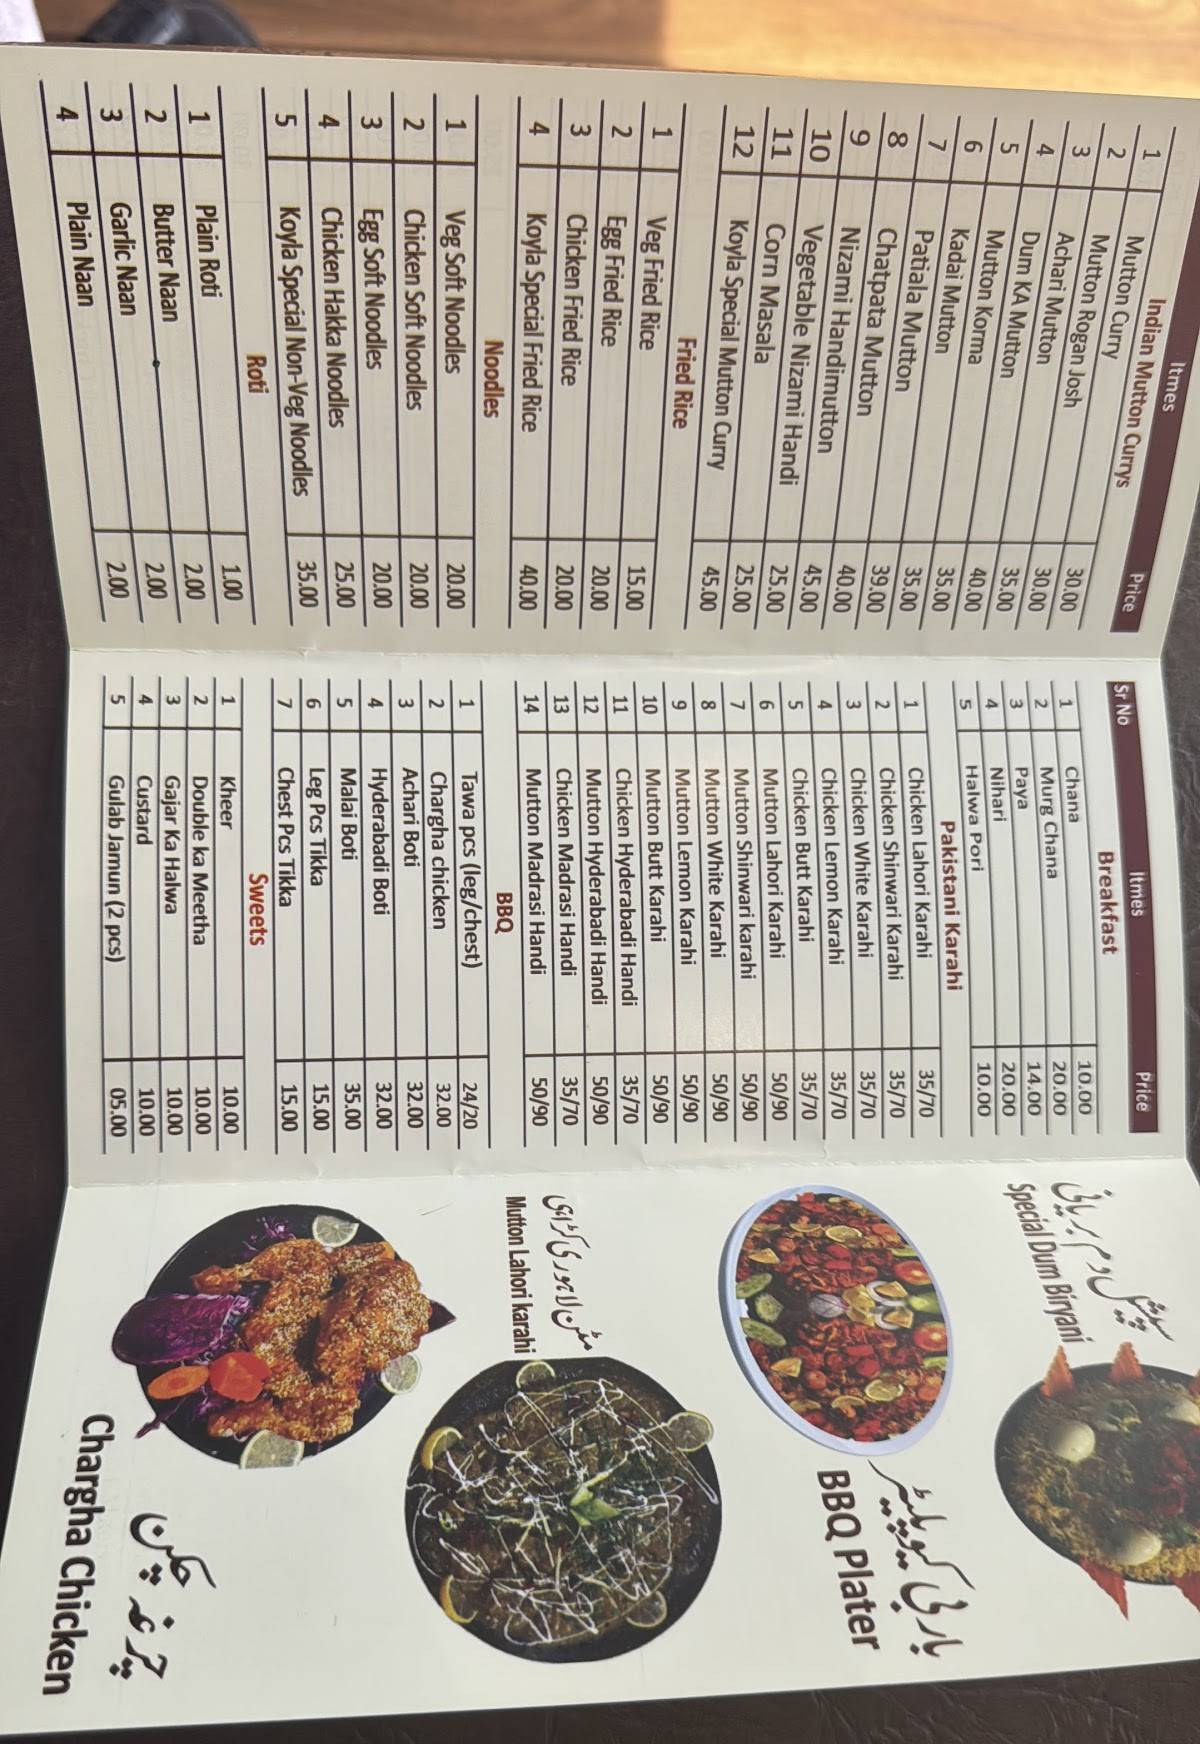 Itmes Price
Indian Mutton Currys
1 Mutton Curry 30.00
2 Mutton Rogan Josh 30.00
3 Achari Mutton 35.00
4 Dum KA Mutton 40.00
5 Mutton Korma 35.00
6 Kadai Mutton 35.00
7 Patiala Mutton 39.00
8 Chatpata Mutton 40.00
9 Nizami Handimutton 45.00
10 Vegetable Nizami Handi 25.00
11 Corn Masala 25.00
12 Koyla Special Mutton Curry 45.00
Fried Rice
1 Veg Fried Rice 15.00
2 Egg Fried Rice 20.00
3 Chicken Fried Rice 20.00
4 Koyla Special Fried Rice 40.00
Noodles
1 Veg Soft Noodles 20.00
2 Chicken Soft Noodles 20.00
3 Egg Soft Noodles 20.00
4 Chicken Hakka Noodles 25.00
5 Koyla Special Non-Veg Noodles 35.00
Roti
1 Plain Roti 1.00
2 Butter Naan 2.00
3 Garlic Naan 2.00
4 Plain Naan 2.00
Sr No Itmes Price
Breakfast
1 Chana 10.00
2 Murg Chana 20.00
3 Paya 14.00
4 Nihari 20.00
5 Halwa Pori 10.00
Pakistani Karahi
1 Chicken Lahori Karahi 35/70
2 Chicken Shinwari Karahi 35/70
3 Chicken White Karahi 35/70
4 Chicken Lemon Karahi 35/70
5 Chicken Butt Karahi 35/70
6 Mutton Lahori Karahi 50/90
7 Mutton Shinwari karahi 50/90
8 Mutton White Karahi 50/90
9 Mutton Lemon Karahi 50/90
10 Mutton Butt Karahi 50/90
11 Chicken Hyderabadi Handi 35/70
12 Mutton Hyderabadi Handi 50/90
13 Chicken Madrasi Handi 35/70
14 Mutton Madrasi Handi 50/90
BBQ
1 Tawa pcs (leg/chest) 24/20
2 Chargha chicken 32.00
3 Achari Boti 32.00
4 Hyderabadi Boti 32.00
5 Malai Boti 35.00
6 Leg Pcs Tikka 15.00
7 Chest Pcs Tikka 15.00
Sweets
1 Kheer 10.00
2 Double ka Meetha 10.00
3 Gajar Ka Halwa 10.00
4 Custard 10.00
5 Gulab Jamun (2 pcs) 05.00
سپیشل دم بریانی
Special Dum Biryani
بار بی کیو پلیٹر
BBQ Plater
مٹن لاہوری کڑاہی
Mutton Lahori karahi
چرغہ چکن
Chargha Chicken